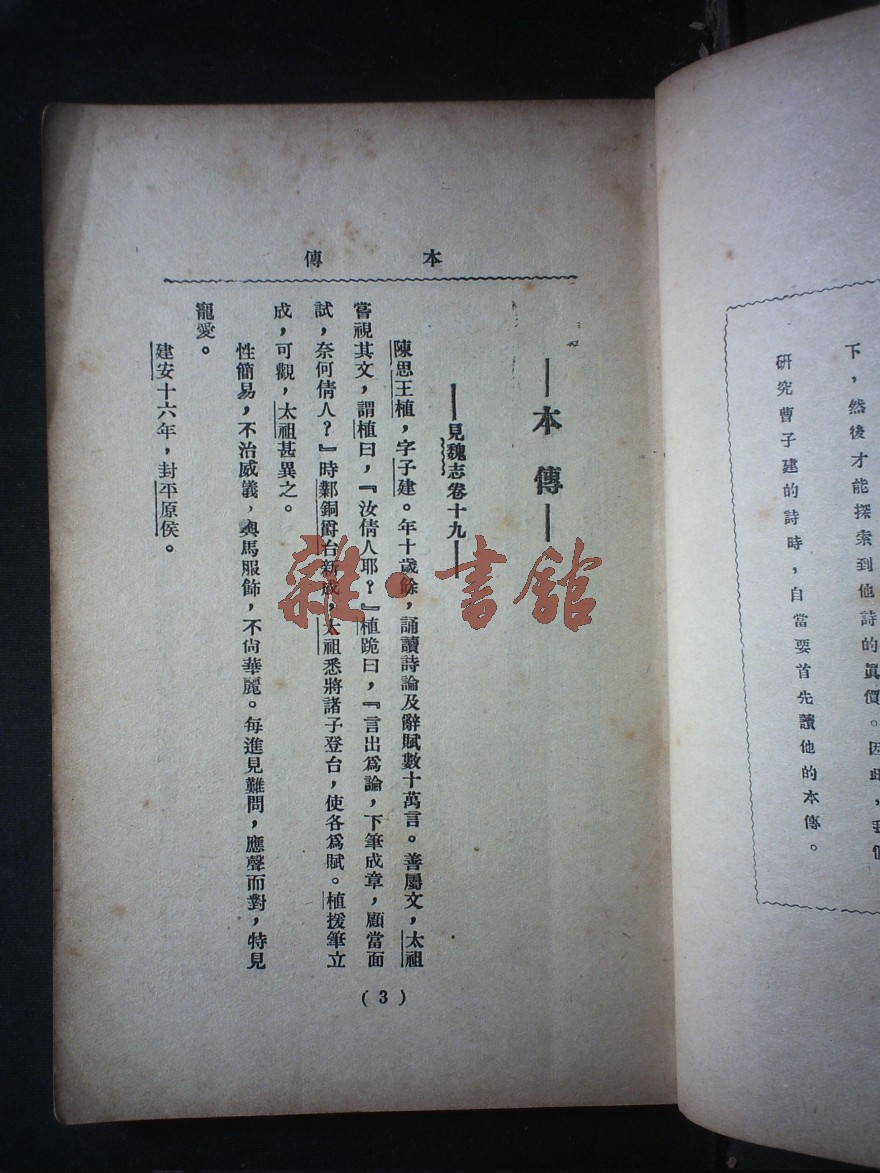 下，然後才能探索到他詩的眞價。因此，我們
研究曹子建的詩時，自當要首先讀他的本傳。
本傳
—本傳—
—見魏志卷十九—
陳思王植，字子建。年十歲餘，誦讀詩論及辭賦數十萬言。善屬文，太祖
嘗視其文，謂植曰，『汝倩人耶？』植跪曰，『言出爲論，下筆成章，顧當面
試，奈何倩人？』時鄴銅爵台新成，太祖悉將諸子登台，使各爲賦。植援筆立
成，可觀，太祖甚異之。
性簡易，不治威義，輿馬服飾，不尙華麗。每進見難問，應聲而對，特見
寵愛。
建安十六年，封平原侯。
(3)
雜·書館